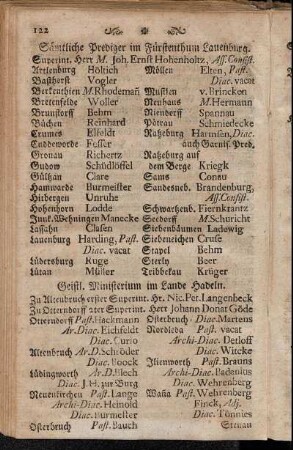 122
Sämtliche Prediger im Fürstenthum Lauenburg.
Superint. Herr M. Joh. Ernst Hohenholtz, Ass. Consist.
Artlenburg Höltich Möllen Elten, Past.
Basthorst Vogler Diac. vacat
Berkenthien M. Rhodeman Mustin v. Brincken
Bretenfelde Woller Neuhaus M. Hermann
Brunstorff Behm Niendorff Spannau
Büchen Reinhard Pötrau Schmiedecke
Crumes Elfeldt Ratzeburg Harmsen, Diac.
Cuddewörde Fesser auch Garnis. Pred.
Gronau Richertz Ratzeburg auf
Gudow Schüdlöffel dem Berge Kriegk
Gültzau Clare St. Georg Canz
Hamwarde Burmeister Sandesneb. Brandenburg,
Hitbergen Unruhe Ass. Consist.
Hohenhorn Lodde Schwartzenb. Fiernkrantz
Junk. Wehningen Manecke Seedorff M. Schuricht
Lassahn Clasen Siebenbäumen Ladewig
Lauenburg Harding, Past. Siebeneichen Cruse
Diac. vacat Stapel Behm
Lüdersburg Kuge Sterly Beer
Lütau Müller Tribbekau Krüger
Geistl. Ministerium im Lande Hadeln.
Zu Altenbruch erster Superint. Hr. Nic. Pet. Langenbeck
Zu Otterndorf ater Superint. Herr Johann Donat Göde
Otterndorf Past. Hackmann Osterbruch Diac. Martens
Ar. Diac. Eichfeldt Nordleda Past. vacat
Diac. Curio Archi-Diac. Detloff
Altenbruch A. D. Schröder Diac. Witcke
Diac. Boock Jlienworth Past. Brauns
Lüdingworth Ar. D. Blech Archi-Diac. Badenius
Diac. J. H. zur Burg Diac. Wehrenberg
Neuenkirchen Past. Lange Wanna Past. Wehrenberg
Archi-Diac. Heinold Finck, Adj.
Diac. Burmester Diac. Tönnies
Osterbruch Past. Bauch Steinau